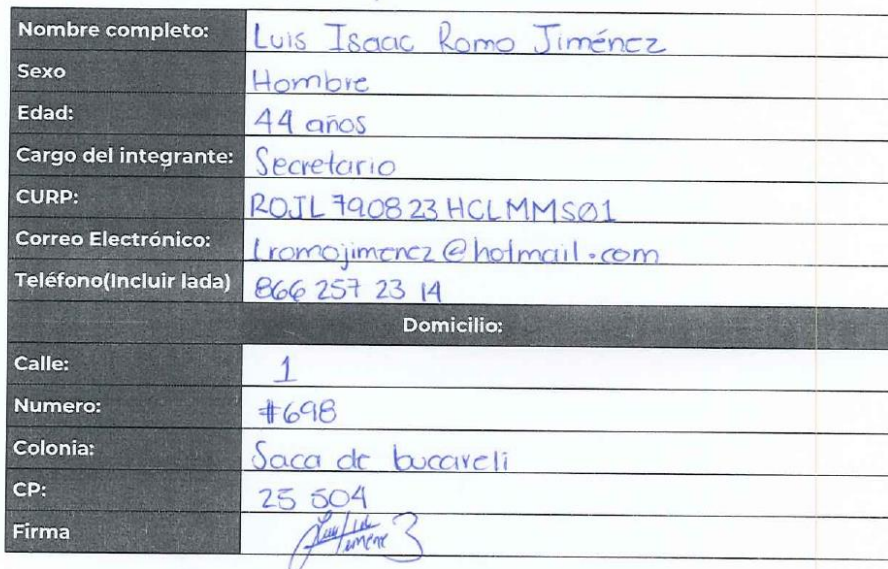 Nombre completo: Luis Isaac Romo Jiménez
Sexo Hombre
Edad: 44 años
Cargo del integrante: Secretario
CURP: ROJL790823HCLMMS01
Correo Electrónico: lromojimenez@hotmail.com
Teléfono(Incluir lada) 866 257 23 14
Domicilio:
Calle: 1
Numero: #698
Colonia: Saca de bucareli
CP: 25 504
Firma